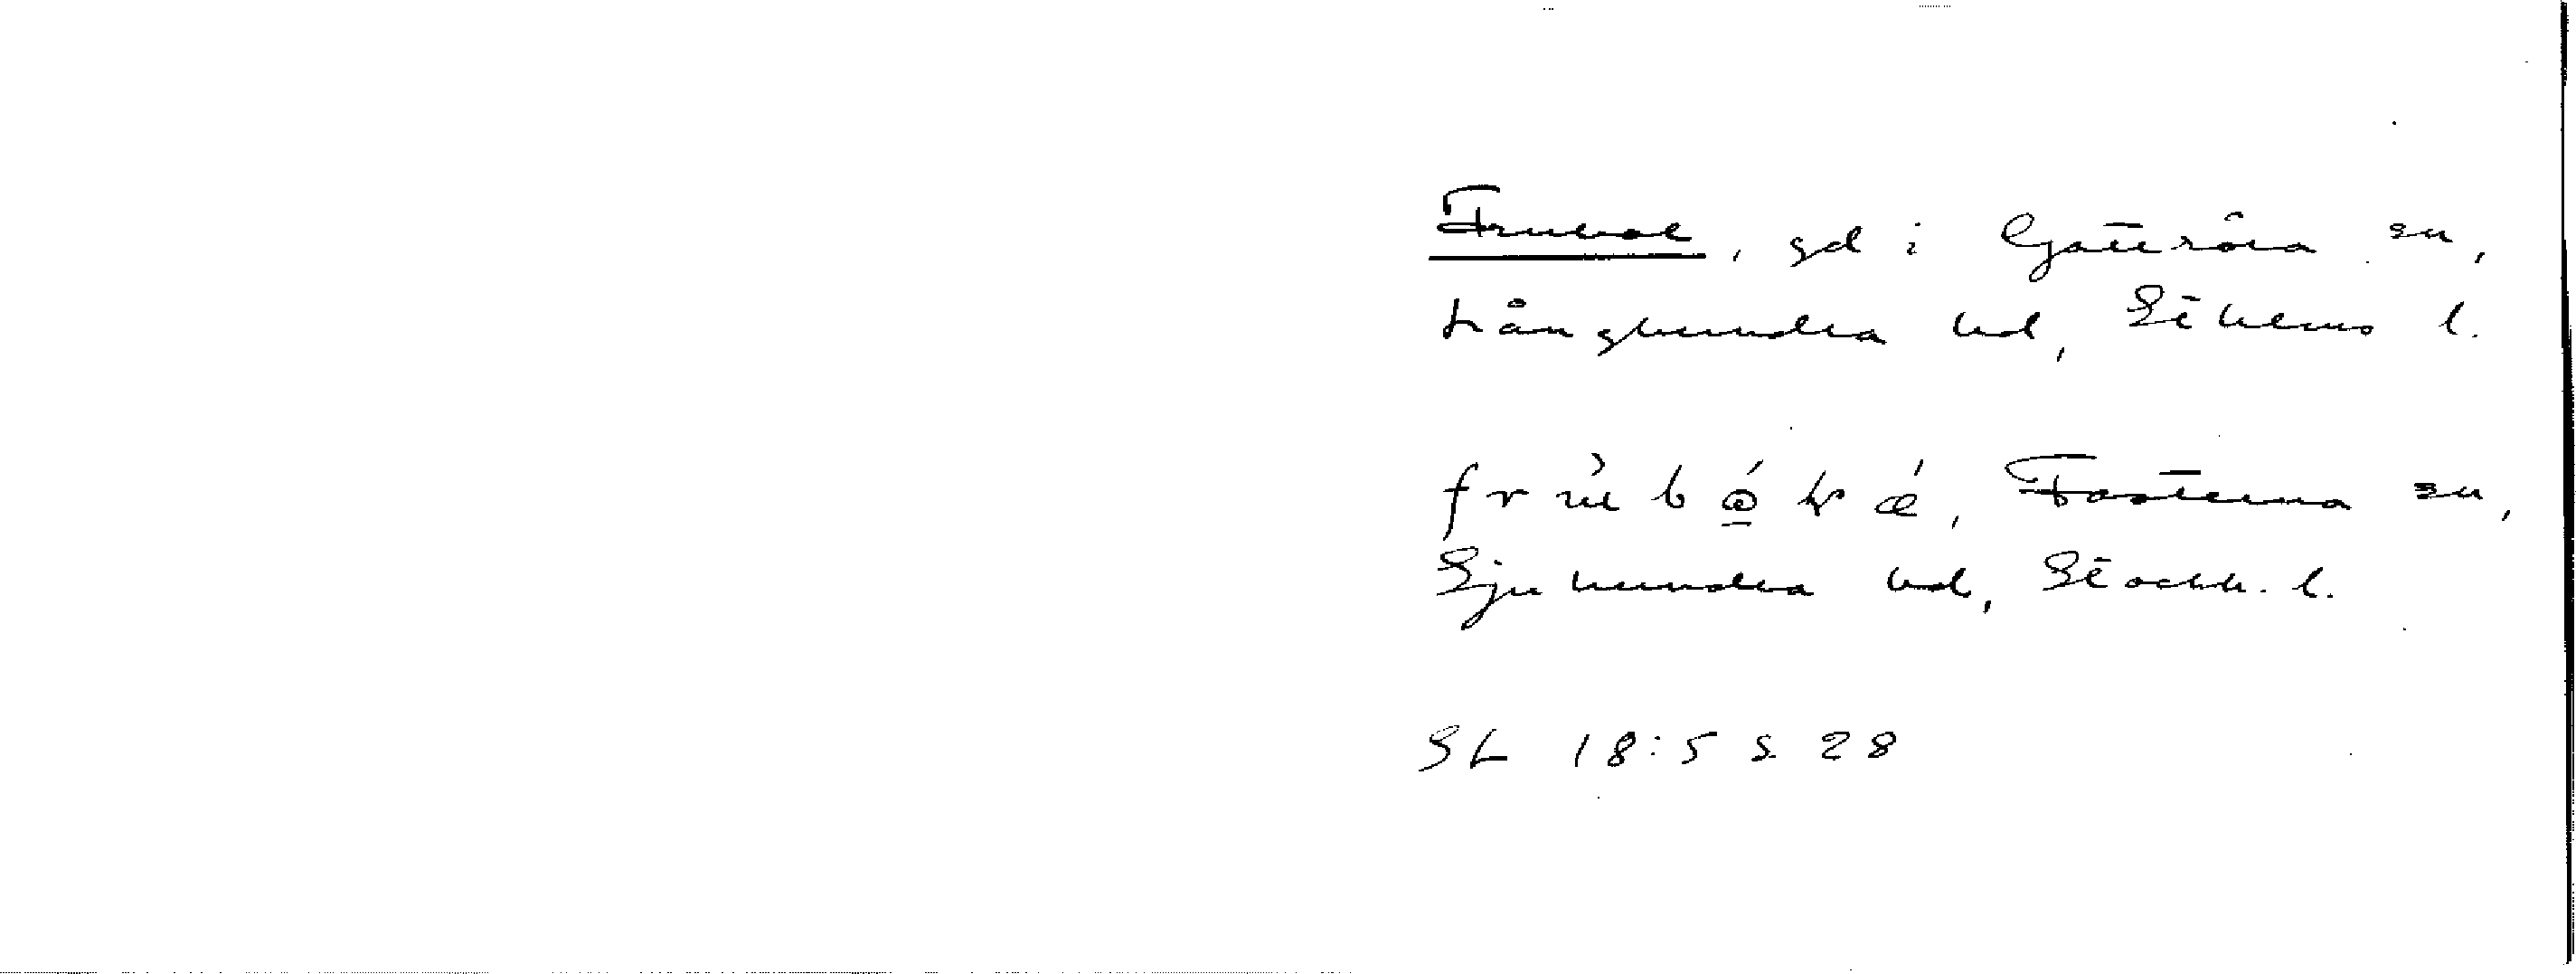 Frubol, gd i Gottröra sn,
Långhundra hd, Sthlms l.
Fasterna sn,
Sjuhundra hd, Stockh. l.
SL 18:5 s 28